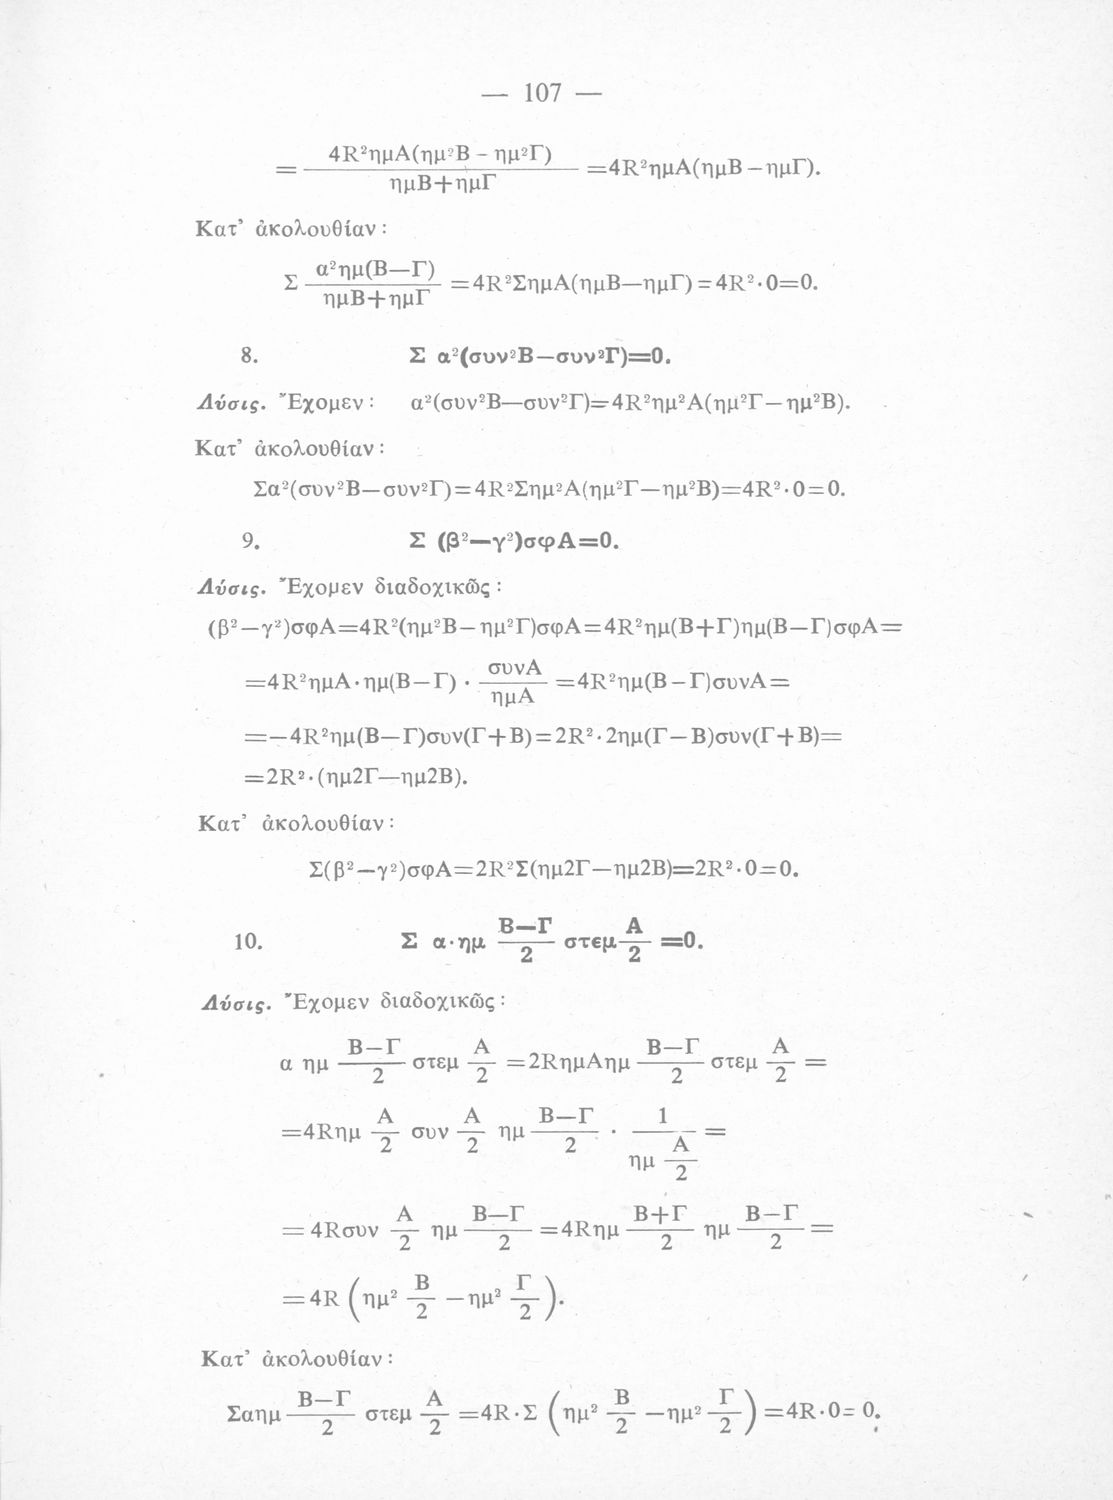 — 107 —
= 4R²ημΑ(ημ²Β - ημ²Γ) / ημΒ+ημΓ =4R²ημΑ(ημΒ — ημΓ).
Κατ' ἀκολουθίαν :
Σ α²ημ(Β—Γ) / ημΒ+ημΓ =4R²ΣημΑ(ημΒ—ημΓ) = 4R²·0=0.
8. Σ α²(συν²Β—συν²Γ)=0.
Λύσις. Ἔχομεν : α²(συν²Β—συν²Γ)=4R²ημ²Α(ημ²Γ—ημ²Β).
Κατ' ἀκολουθίαν :
Σα²(συν²Β—συν²Γ)=4R²Σημ²Α(ημ²Γ—ημ²Β)=4R²·0=0.
9. Σ (β²—γ²)σφΑ=0.
Λύσις. Ἔχομεν διαδοχικῶς :
(β²—γ²)σφΑ=4R²(ημ²Β—ημ²Γ)σφΑ=4R²ημ(Β+Γ)ημ(Β—Γ)σφΑ=
=4R²ημΑ·ημ(Β—Γ) · συνΑ / ημΑ =4R²ημ(Β—Γ)συνΑ=
=—4R²ημ(Β—Γ)συν(Γ+Β)=2R²·2ημ(Γ—Β)συν(Γ+Β)=
=2R²·(ημ2Γ—ημ2Β).
Κατ' ἀκολουθίαν :
Σ(β²—γ²)σφΑ=2R²Σ(ημ2Γ—ημ2Β)=2R²·0=0.
10. Σ α·ημ Β—Γ / 2 στεμ Α / 2 =0.
Λύσις. Ἔχομεν διαδοχικῶς :
α ημ Β—Γ / 2 στεμ Α / 2 =2RημΑημ Β—Γ / 2 στεμ Α / 2 =
=4Rημ Α / 2 συν Α / 2 ημ Β—Γ / 2 · 1 / ημ Α / 2 =
=4Rσυν Α / 2 ημ Β—Γ / 2 =4Rημ Β+Γ / 2 ημ Β—Γ / 2 =
=4R (ημ² Β / 2 —ημ² Γ / 2).
Κατ' ἀκολουθίαν :
Σαημ Β—Γ / 2 στεμ Α / 2 =4R·Σ (ημ² Β / 2 —ημ² Γ / 2) =4R·0= 0.